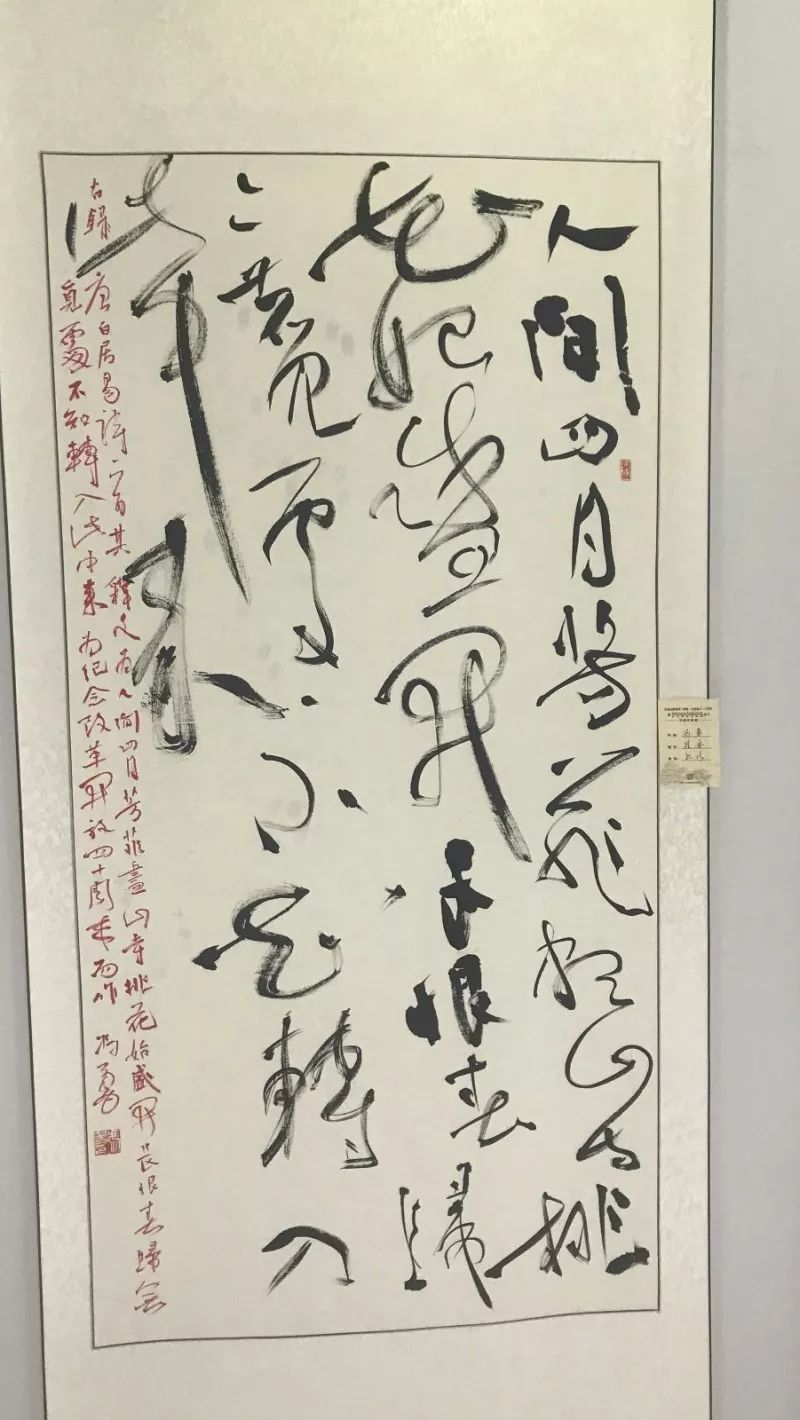 人間四月芳菲盡山寺桃
花始盛開長恨春歸
無覓處不知轉入
此中來
右録唐白居易詩一首其釋文為人間四月芳菲盡山寺桃花始盛開長恨春歸無
覓處不知轉入此中來為紀念改革開放四十周年而作 馮勇